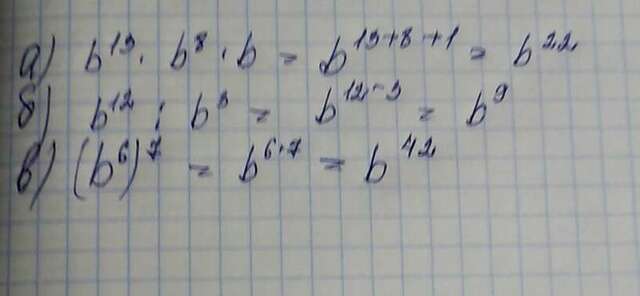 а) b¹³ · b⁸ · b = b¹³⁺⁸⁺¹ = b²²
б) b¹² : b³ = b¹²⁻³ = b⁹
в) (b⁶)⁷ = b⁶·⁷ = b⁴²